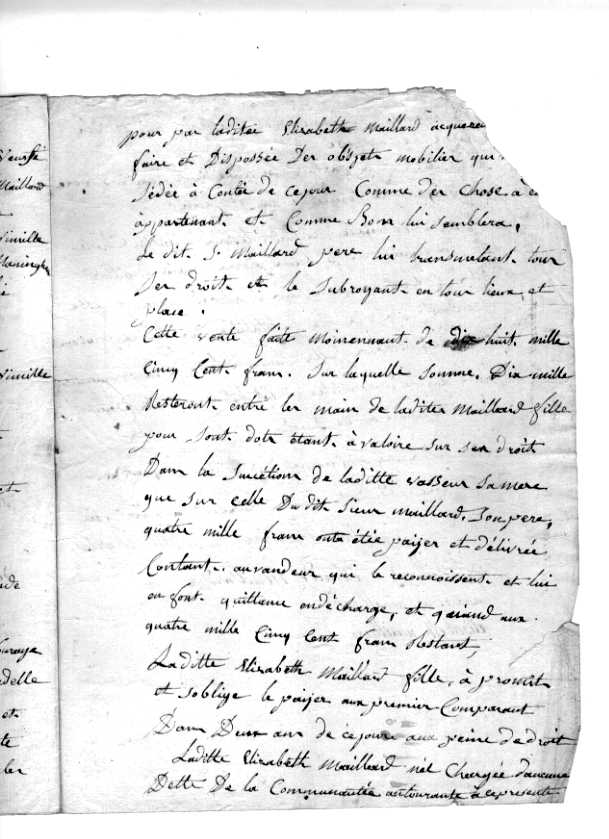 pour par laditte Elizabeth Maillard acquere
faire et Dispossée Der obsjets mobilier qui
Sédée à Contée de cejour Comme der Chose à
appartenant et Comme Bon lui semblera,
Le dit S. Maillard pere lui transmetant tour
Ser droit et le Subroyant en tour lieux et
place.
Cette vente faite Moinennant de dix huit mille
Cinq Cent fran. Sur laquelle Somme, Dix mille
Resteront entre ler main de laditte Maillard fille
pour sont dote étant à valoire sur ser droit
Dam la Succétion de laditte vasseur Samere
que sur celle Du dit Sieur Maillard, Sonpere,
quatre mille fram onta étée paijer et délivrée
Contant auvandeur qui le reconnoissent et lui
en font quittance endécharge, et quiand aux
quatre mille Cinq Cent fram Restant
Laditte Elizabeth Maillard fille, à promit
et soblige le paijer aux premier Comparant
Dam Deux an de cejour aux peine de droit
Laditte Elizabeth Maillard n'et Chargée d'aucune
Dette De la Communautée antourante àcepresente
Maillard
vimille
vimille
et
delle
et
te
ler